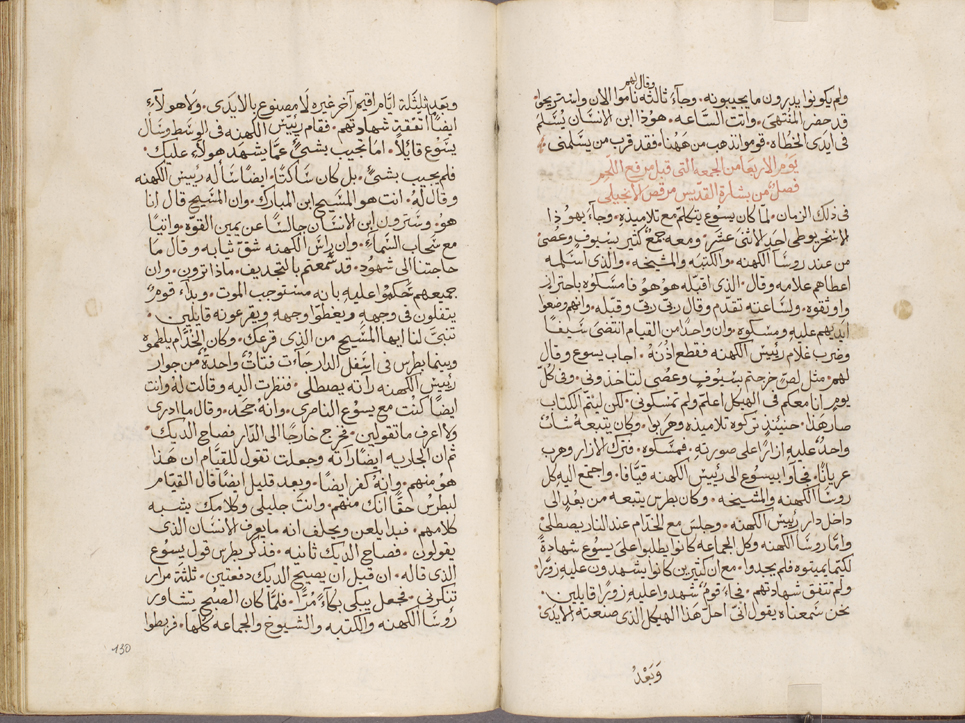 وقال لهم
ولم يكونوا يدرون ما يجيبونه. وجاء ثالثه ناموا الان واستريحوا
قد حضر المنتهى. واتت الساعه. هوذا ابن الانسان يُسَلم
فى ايدى الخطاه. قوموا نذهب من ههنا فقد قرب من يسلمنى.
يوم الاربعا من الجمعه التى قبل من رفع اللحم
فصل من بشارة القديس مرقص الانجيلى
فى ذلك الزمان. لما كان يسوع يتكلم مع تلاميذه. وجاء يهوذا
الاسخريوطى احد الاثنى عشر. ومعه جمع كثير بسيوف وعصى
من عند روسا الكهنه. والكتبه والمشيخه. والذى اسلمه
اعطاهم علامه وقال. الذى اقبله هو هو فامسكوه باحتراز
واوثقوه. ولساعته تقدم وقال ربى ربى وقبله. وانهم وضعوا
ايديهم عليه ومسكوه. وان واحدًا من القيام انتضى سيفًا
وضرب غلام رئيس الكهنه فقطع اذنه. اجاب يسوع وقال
لهم. مثل لص خرجتم بسيوف وعصى لتاخذونى. وفى كل
يوم انا معكم فى الهيكل اعلم ولم تمسكونى. لكن ليتم الكتاب
صار هذا. حينيذ تركوه تلاميذه وهربوا. وكان يتبعه شاب
واحد عليه ازارًا على صورته. فمسكوه. فترك الازار وهرب
عريانًا. فجاوا بيسوع الى رئيس الكهنه قيافا. واجتمع اليه كل
روسا الكهنه والمشيخه. وكان بطرس يتبعه من بعد الى
داخل دار رئيس الكهنه. وجلس مع الخدام عند النار يصطلى
واما روسا الكهنه وكل الجماعه كانوا يطلبوا على يسوع شهادة
لكيما يميتوه فلم يجدوا. مع ان كثيرين كانوا يشهدون عليه زورًا.
ولم تتفق شهادتهم. فجاء قوم شهدوا عليه زورًا قايلين.
نحن سمعناه يقول انى احل هذا الهيكل الذى صنعته الايدى
وَبَعْدُ
وبعد ثلثة ايام اقيم اخر غيره لا مصنوع بالايدى. ولا هولاء
ايضًا اتفقة شهادتهم. فقام رئيس الكهنه فى الوسط وسال
يسوع قايلاً. اما تجيب بشئ عما يشهد هولاء عليك.
فلم يجيب بشئ. بل كان ساكتًا. ايضًا ساله رئيس الكهنه
وقال له. انت هو المسيح ابن المبارك. وان المسيح قال انا
هو. وسترون ابن الانسان جالسًا عن يمين القوه. واتيًا
مع سحاب السماء. وان راس الكهنه شق ثيابه وقال ما
حاجتنا الى شهود. قد سمعتم بالتجديف. ماذا ترون. وان
جميعهم حكموا عليه بانه مستوجب الموت. وبدء قوم
يتفلون فى وجهه ويغطوا وجهه ويقرعونه قايلين.
تنبى لنا ايها المسيح من الذى قرعك. وكان الخدام يلطموه
وبينما بطرس فى اسفل الدار جاءت فتاة واحدة من جوار
رئيس الكهنه راته يصطلى. فنظرت اليه وقالت له وانت
ايضًا كنت مع يسوع الناصرى. وانه جحد. وقال ما ادرى
ولا اعرف ما تقولين. فخرج خارجًا الى الدار فصاح الديك.
ثم ان الجاريه ايضًا راته وجعلت تقول للقيام ان هذا
هو منهم. وانه كفر ايضًا. وبعد قليل ايضًا قال القيام
لبطرس حقًا انك منهم. وانت جليلى وكلامك يشبه
كلامهم. فبدا يلعن ويحلف انه ما يعرف الانسان الذى
يقولون. فصاح الديك ثانيه. فذكر بطرس قول يسوع
الذى قاله. ان قبل ان يصيح الديك دفعتين. ثلثة مرار
تنكرنى. فجعل يبكى بكاء مُرًّا. فلما كان الصبح تشاور
روسا الكهنه والكتبه والشيوخ والجماعه كلها. فربطوا
130